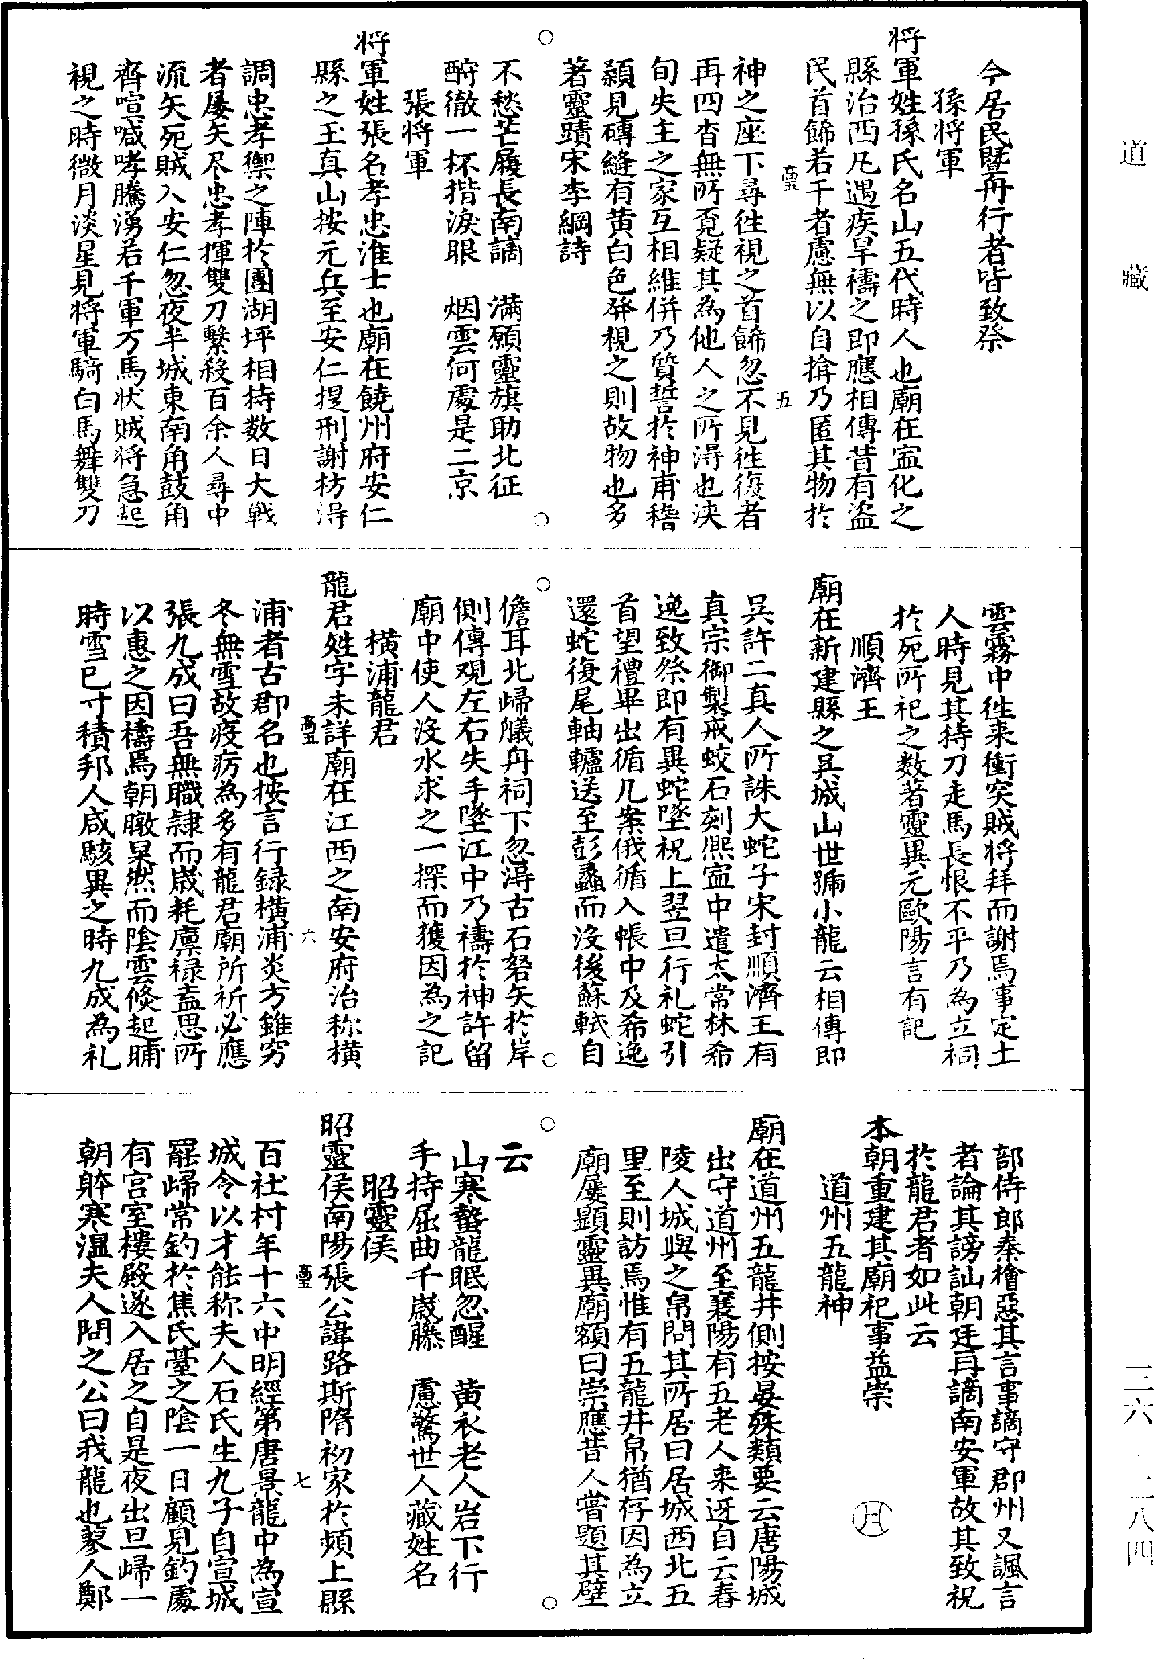 道藏
今居民暨舟行者皆致祭
孫將軍
將軍姓孫氏名山五代時人也廟在宣化之
縣治西凡遇疾旱禱之即應相傳昔有盗
民首飾若干者慮無以自揜乃匿其物於
神之座下尋徃視之首飾忽不見徃復者
再四杳無所覔疑其為他人之所淂也浹
旬失主之家互相維併乃質誓於神甫稽
顙見磚縫有黄白色發視之則故物也多
著靈蹟宋李綱詩
不愁芒屨長南謫　滿願靈旗助北征
酹徹一杯揩淚眼　烟雲何處是二京
張將軍
將軍姓張名孝忠淮士也廟在饒州府安仁
縣之玉真山按元兵至安仁提刑謝枋淂
調忠孝禦之陣於團湖坪相持数日大戰
者屢矢尽忠孝揮雙刀繫殺百余人尋中
流矢死賊入安仁忽夜半城東南角鼓角
齊喧喊哮騰湧若千軍万馬状贼将急起
視之時微月淡星見將軍騎白馬舞雙刀
雲霧中徃来衝突賊將拜而謝焉事定土
人時見其持刀走馬長恨不平乃為立祠
於死所祀之数著靈異元歐陽言有記
順濟王
廟在新建縣之吴城山世號小龍云相傳即
吴許二真人所誅大蛇子宋封順濟王有
真宗御製戒蛟石刻熙寍中遣太常林希
逸致祭即有異蛇墜祝上翌旦行礼蛇引
首望禮畢出循几案俄循入帳中及希逸
還蛇復尾軸轤送至彭蠡而没後蘇軾自
儋耳北歸艤舟祠下忽淂古石砮矢於岸
側傳观左右失手墜江中乃禱於神許留
廟中使人没水求之一探而獲因為之記
橫浦龍君
龍君姓字未詳廟在江西之南安府治称横
浦者古郡名也按言行録橫浦炎方雖穷
冬無雪故疫疠為多有龍君廟所祈必應
張九成曰吾無職隸而嵗耗廪禄盍思所
以惠之因禱焉朝暾杲然而陰雲倐起晡
時雪已寸積邦人咸駭異之時九成為礼
部侍郎秦檜惡其言事謫守郡州又諷言
者論其謗訕朝廷再謫南安軍故其致祝
於龍君者如此云
本朝重建其廟祀事益崇
道州五龍神
廟在道州五龍井側按晏殊類要云唐陽城
出守道州至襄陽有五老人来迓自云舂
陵人城與之帛問其所居曰居城西北五
里至則訪焉惟有五龍井帛猶存因為立
廟屢顯靈異廟額曰崇應昔人嘗題其壁
云
山寒螯龍眠忽醒　黄衣老人岩下行
手持屈曲千嵗藤　慮驚世人藏姓名
昭靈侯
昭靈侯南陽張公諱路斯隋初家於頻上縣
百社村年十六中明經第唐景龍中為宣
城令以才能称夫人石氏生九子自宣城
罷歸常釣於焦氏臺之陰一日顧見釣處
有宫室樓殿遂入居之自是夜出旦歸一
朝骵寒温夫人問之公曰我龍也蓼人鄭
五
六
七
月
三六-二八四